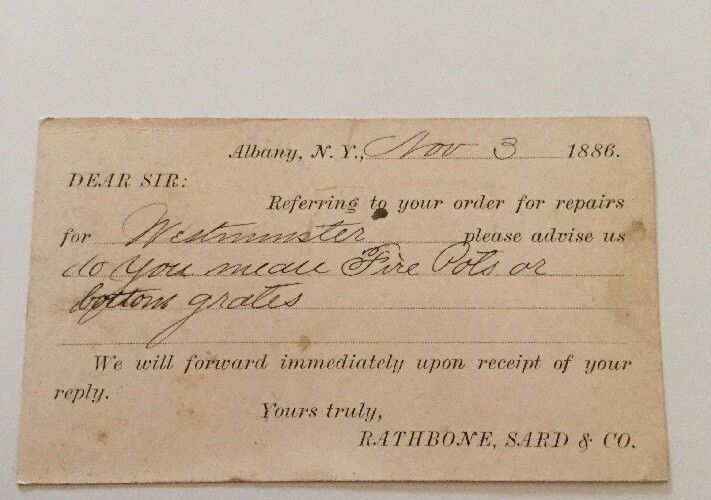 Albany, N. Y., Nov 3 1886.
DEAR SIR:
Referring to your order for repairs
for Westminster please advise us
do you mean Fire Pots or
bottom grates
We will forward immediately upon receipt of your
reply.
Yours truly,
RATHBONE, SARD & CO.